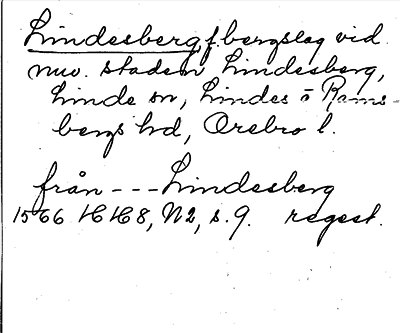 Lindesberg, f. bergslag vid
nuv. staden Lindesberg,
Linde sn, Lindes o Rams-
bergs hd, Örebro l.
från --- Lindesberg
1566 HH8, N2, s. 9. regest.